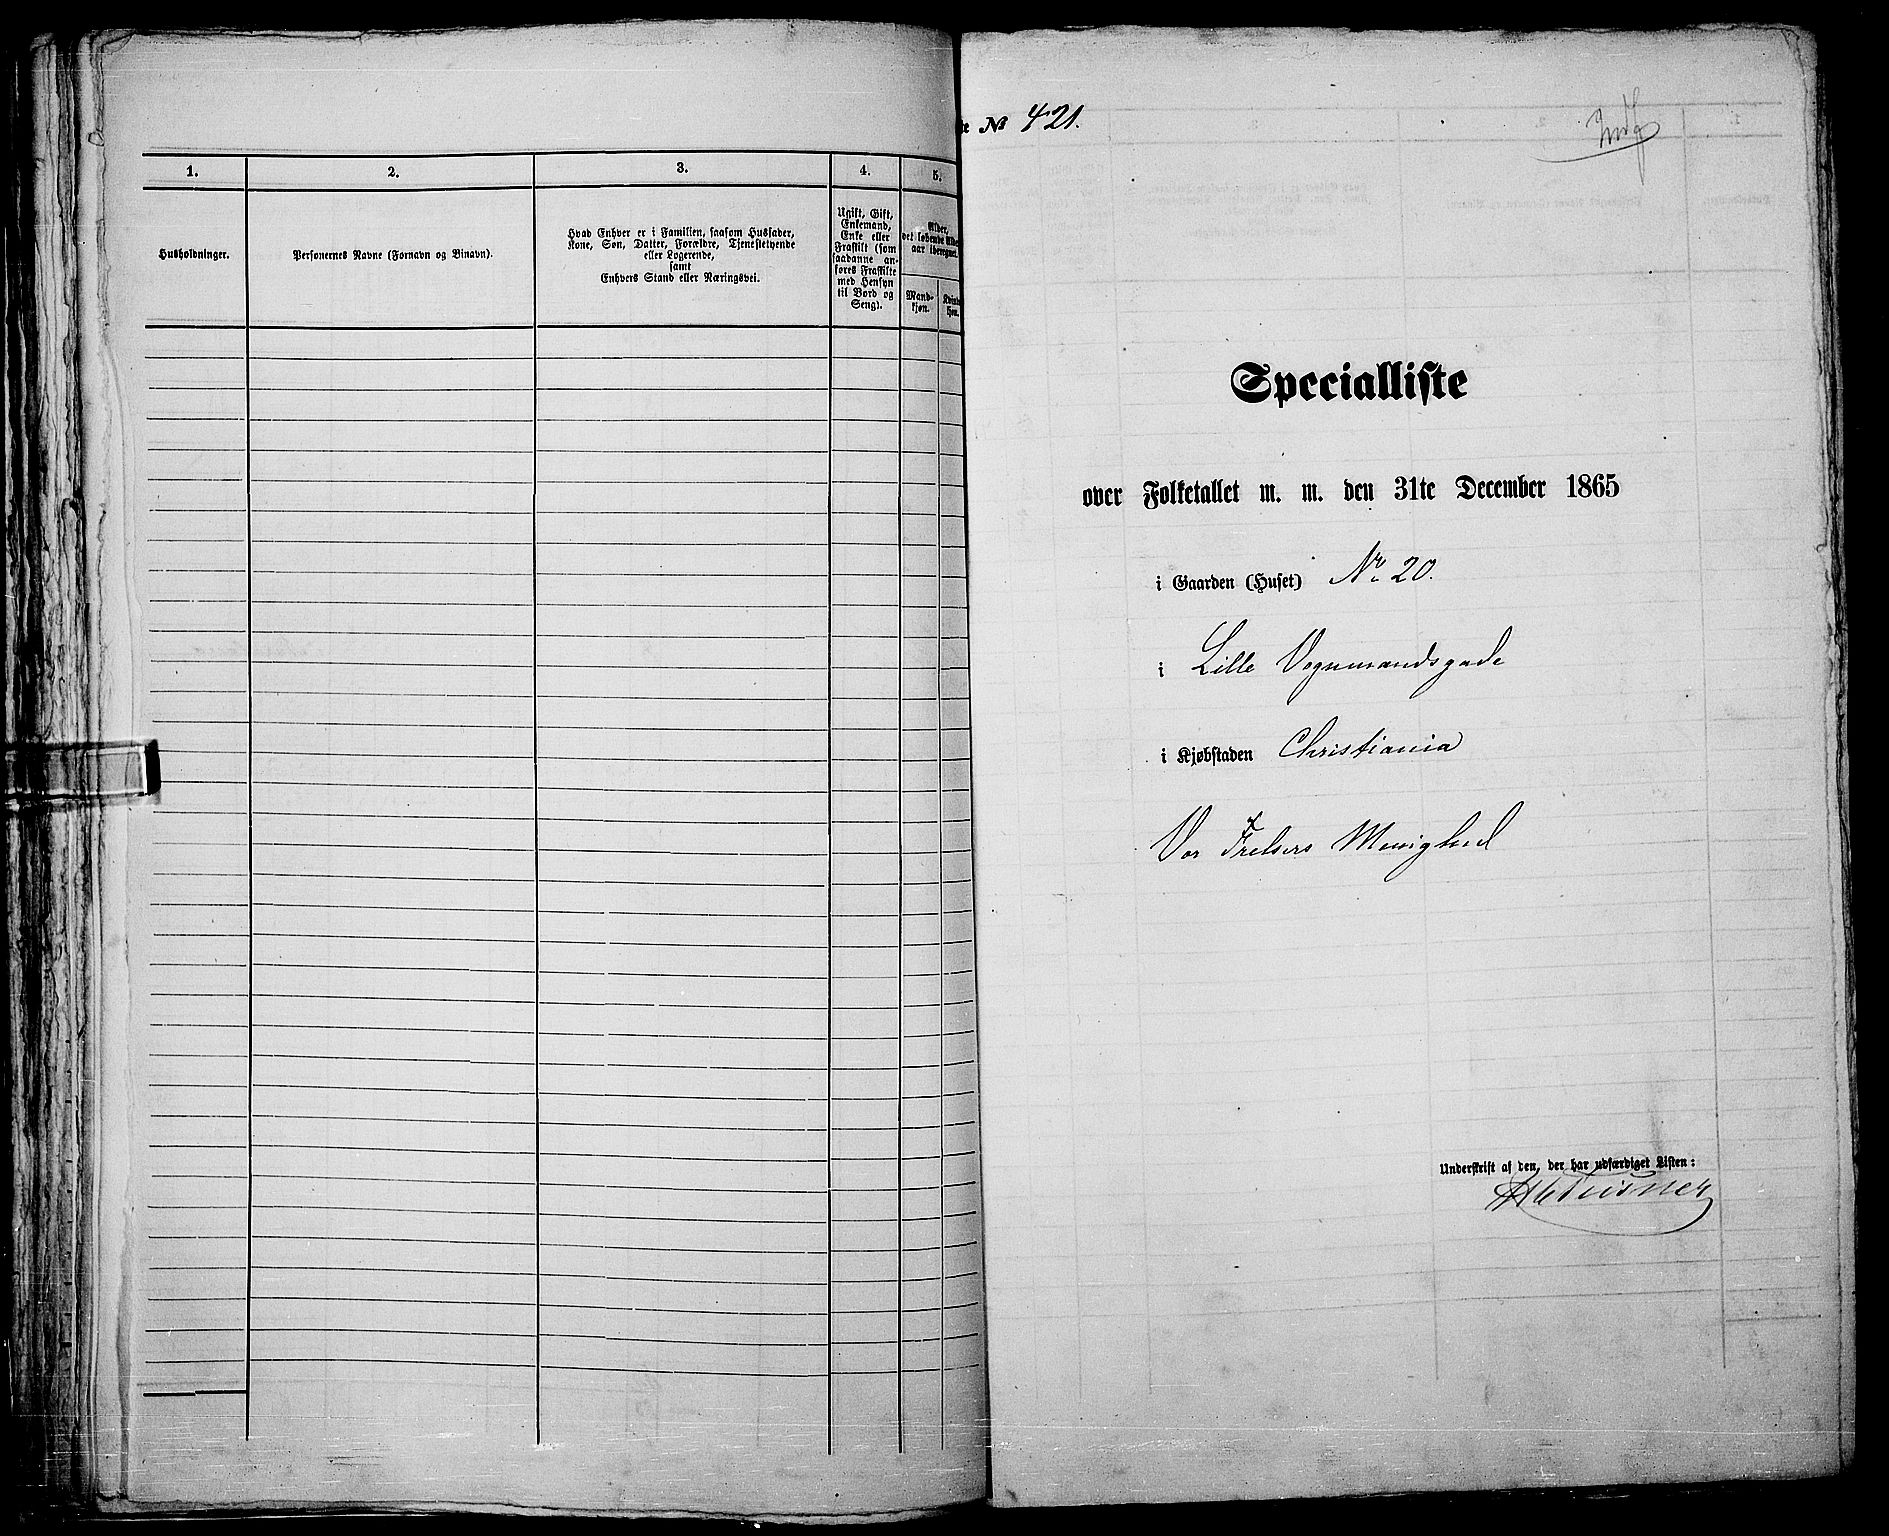 1.
2.
3.
4.
5.
Husholdninger.
Personernes Navne (Fornavn og Binavn).
Hvad Enhver er i Familien, saasom Husfader,
Kone, Søn, Datter, Forældre, Tjenestetyende
eller Logerende,
samt
Enhvers Stand eller Næringsvei.
Ugift, Gift,
Enkemand,
Enke eller
Fraskilt (som
saadanne an-
føres Fraskilte
med Hensyn
til Bord og
Seng).
Alder,
det løbende Alders-
aar iberegnet.
Mand-
kjøn.
Kvinde-
kjøn.
№ 421.
Specialliste
over Folketallet m. m. den 31te December 1865
i Gaarden (Huset) No. 20.
i Lille Vognmandsgade
i Kjøbstaden Christiania
Vor Frelsers Menighed
Underskrift af den, der har udfærdiget Listen: